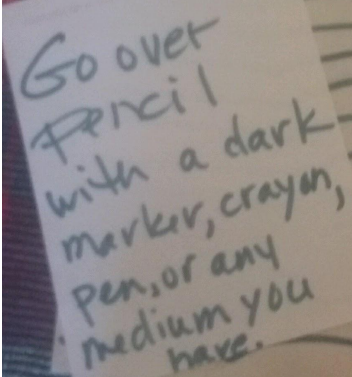 Go over
Pencil
with a dark
marker, crayon,
pen, or any
medium you
have.